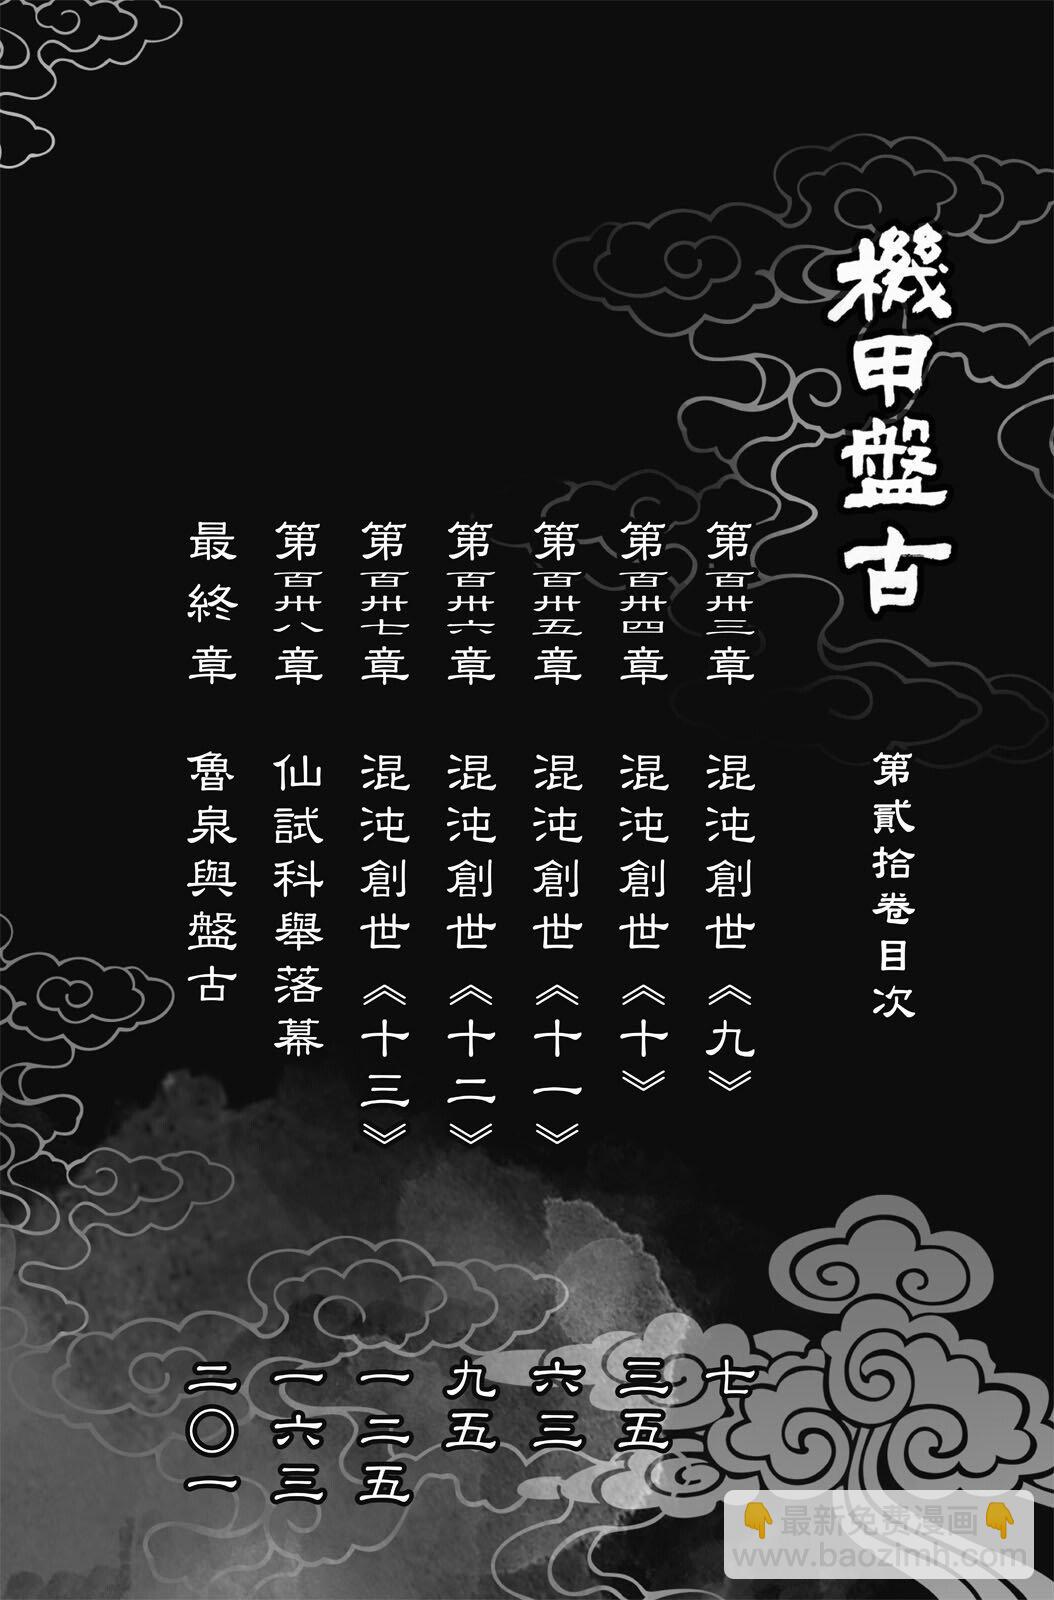 機甲盤古
第貳拾卷目次
第百卅三章 混沌創世《九》 七
第百卅四章 混沌創世《十》 三五
第百卅五章 混沌創世《十一》 六三
第百卅六章 混沌創世《十二》 九五
第百卅七章 混沌創世《十三》 一二五
第百卅八章 仙試科舉落幕 一六三
最終章 魯泉與盤古 二〇一
👇最新免费漫画👇
www.baozimh.com